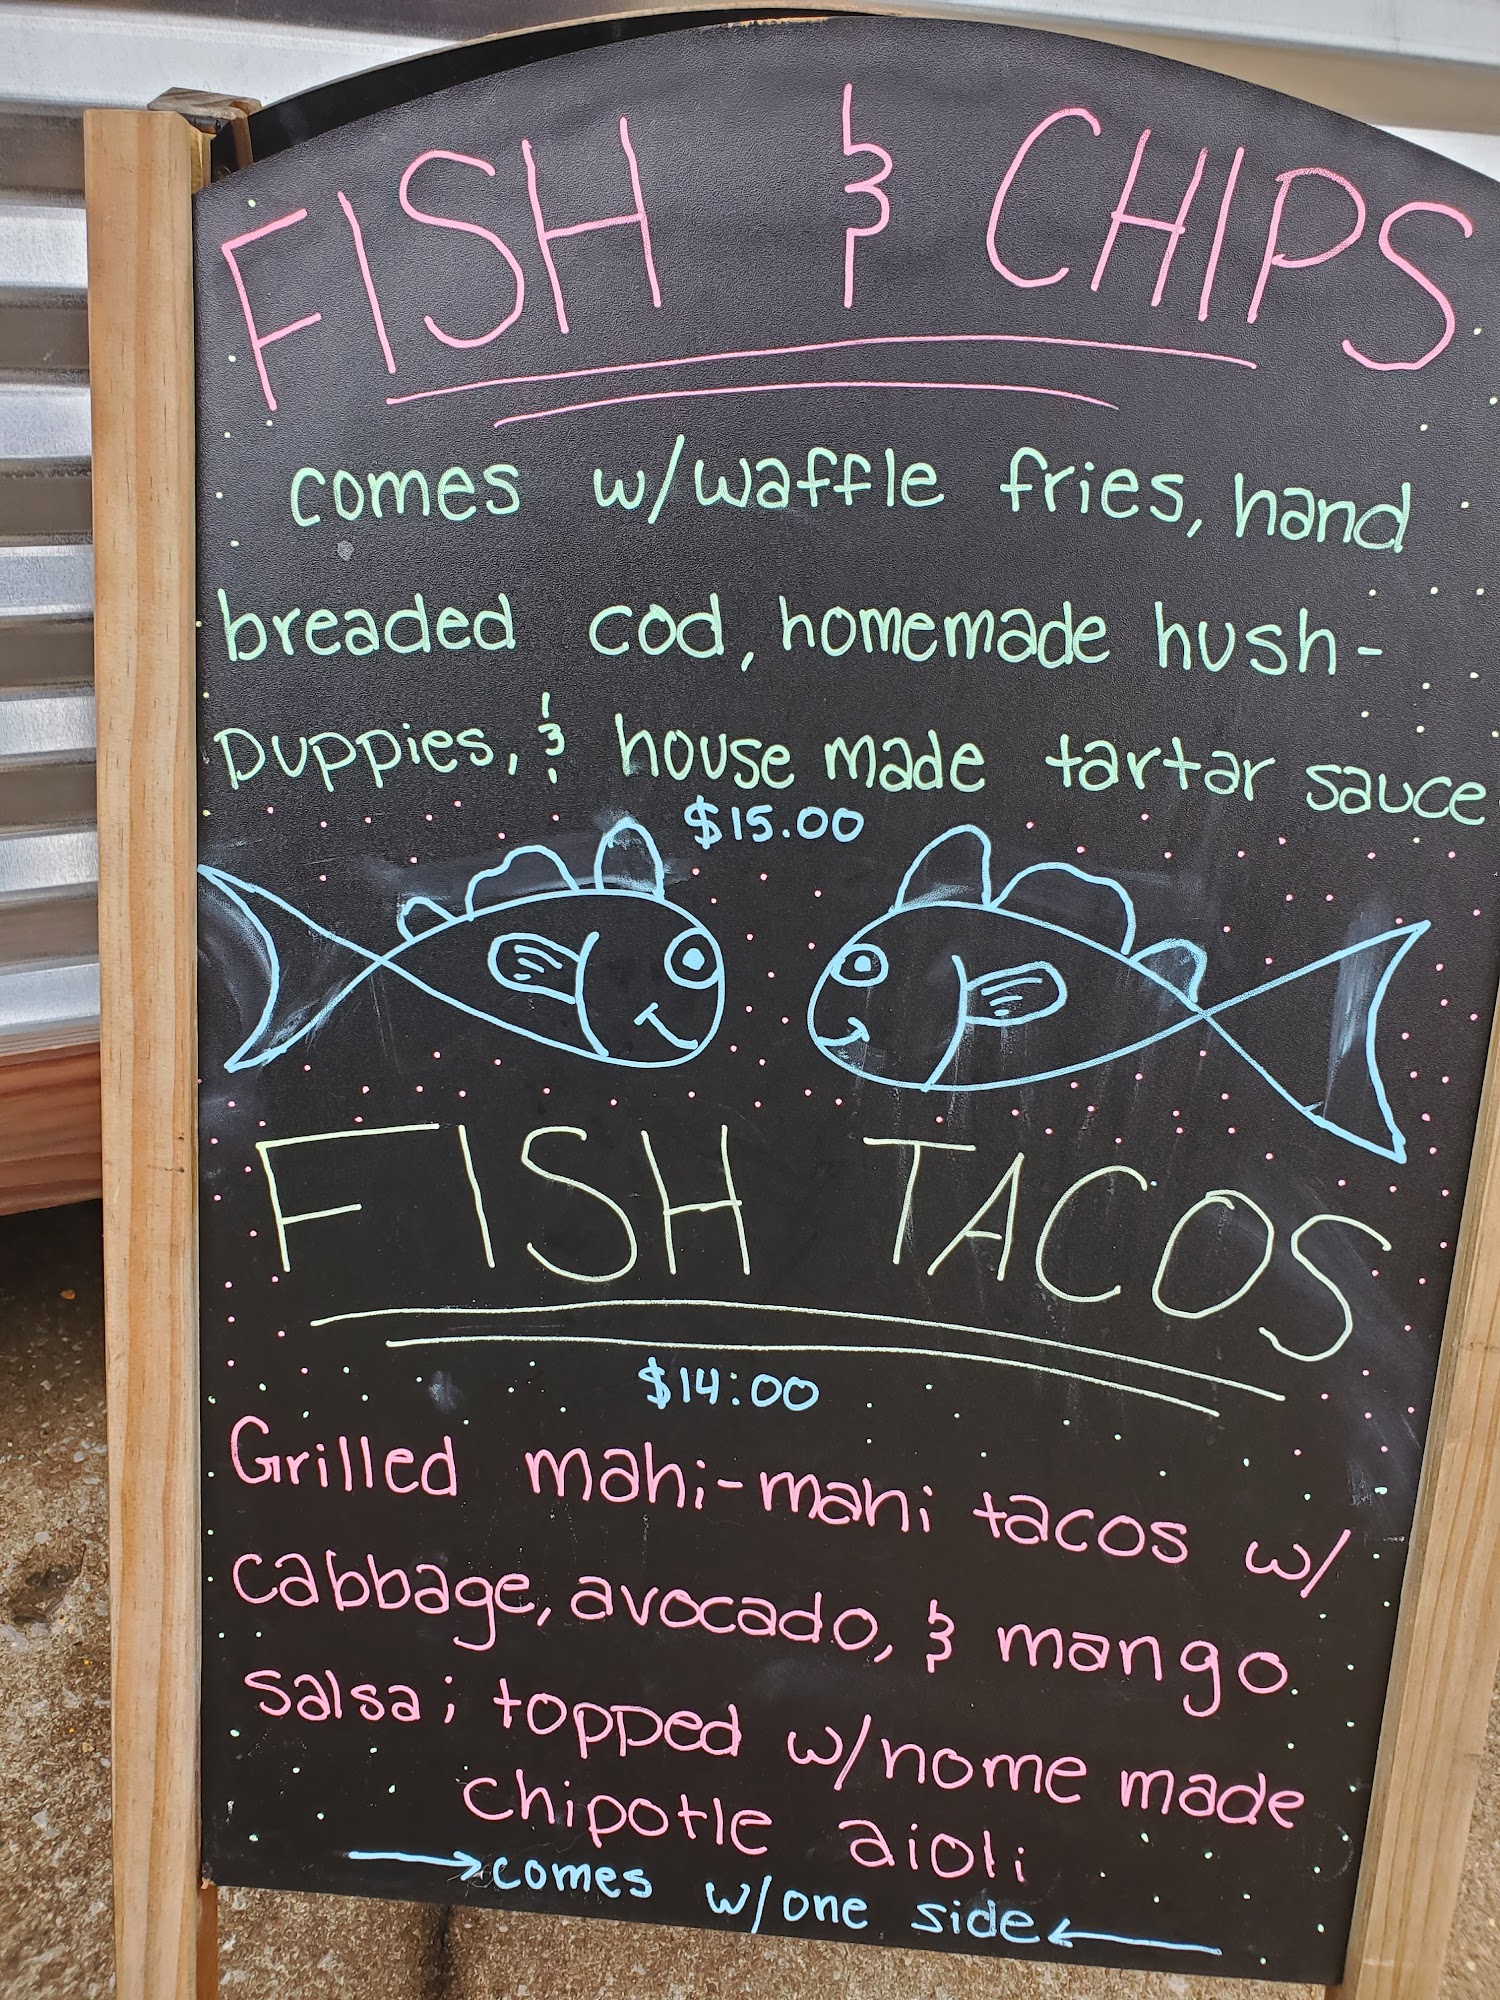 FISH & CHIPS
comes w/waffle fries, hand
breaded cod, homemade hush-
puppies, & house made tartar sauce
$15.00
FISH TACOS
$14.00
Grilled mahi-mahi tacos w/
cabbage, avocado, & mango
salsa; topped w/home made
chipotle aioli
→comes w/one side←